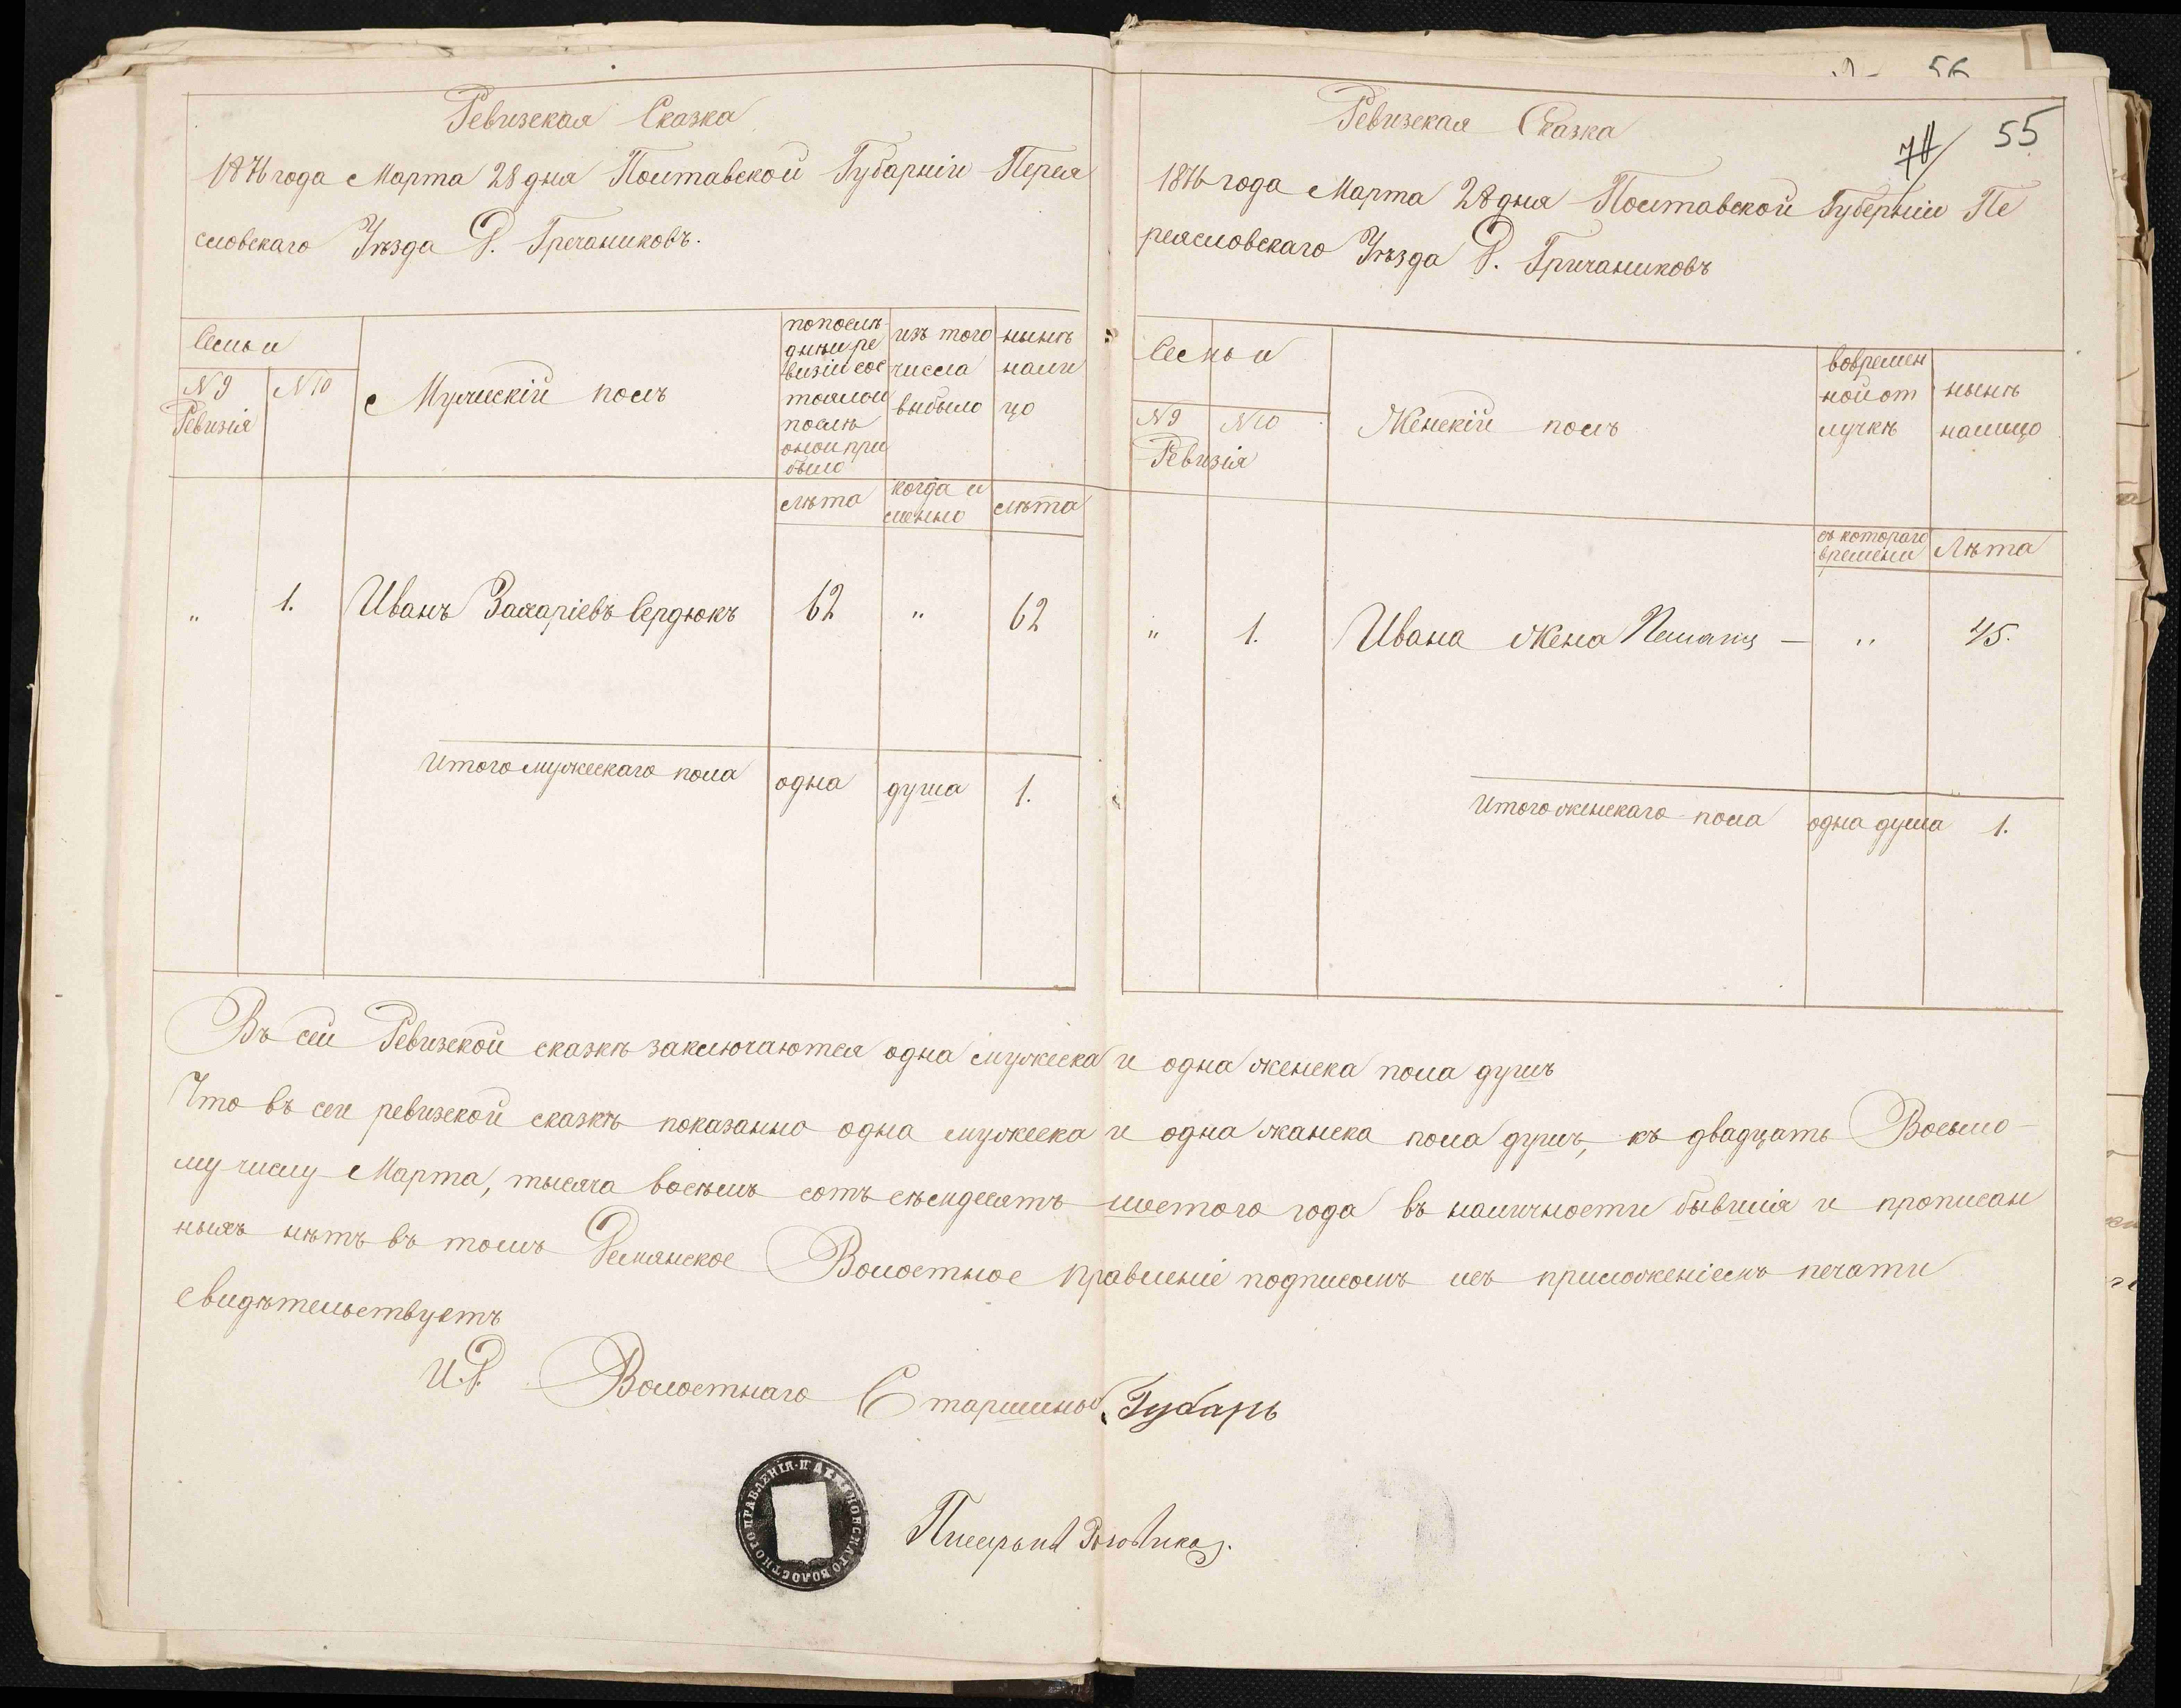 56
55
Ревизская Сказка
1876 года Марта 28 дня Полтавской Губарніи Перея
словскаго Уѣзда Д. Гречаниковъ.
Семьи
№ 9
№ 10
Ревизія
Мужискій полъ
попослѣ-
дней ре
визіи сос
тоялои
послѣ
оной при
было
изъ того
числа
выбыло
нынѣ
нали
цо
лѣта
когда и
менно
лѣта
„ 1. Иванъ Захаріевъ Сердюкъ 62 „ 62
Итого мужескаго пола одна душа 1.
Ревизская Сказка
1876 года Марта 28 дня Полтавской Губерніи Пе
реясловскаго Уѣзда Д. Гричаниковъ
Семьи
№ 9
№ 10
Ревизія
Женскій полъ
вовремен
ной от
лучкѣ
нынѣ
налицо
съ котораго
времени
Лѣта
„ 1. Ивана жена — „ 45.
Итого женскаго пола одна душа 1.
Въ сей Ревизской сказкѣ заключаются одна мужеска и одна женска пола душъ
Что въ сей ревизской сказкѣ показанно одна мужеска и одна жанска пола душъ, къ двадцать Восьмо-
му числу Марта, тысяча восѣмъ сотъ сѣмдесятъ шестого года въ наличности бывшія и прописан
ныхъ нѣтъ въ томъ Демянское Волостное правленіе подписомъ исъ приложеніемъ печати
свидѣтельствуетъ
И.Д. Волостнаго Старшины Губарь
ДЕМЯНОВСКАГО ВОЛОСТНОГО ПРАВЛЕНІЯ
Писарь